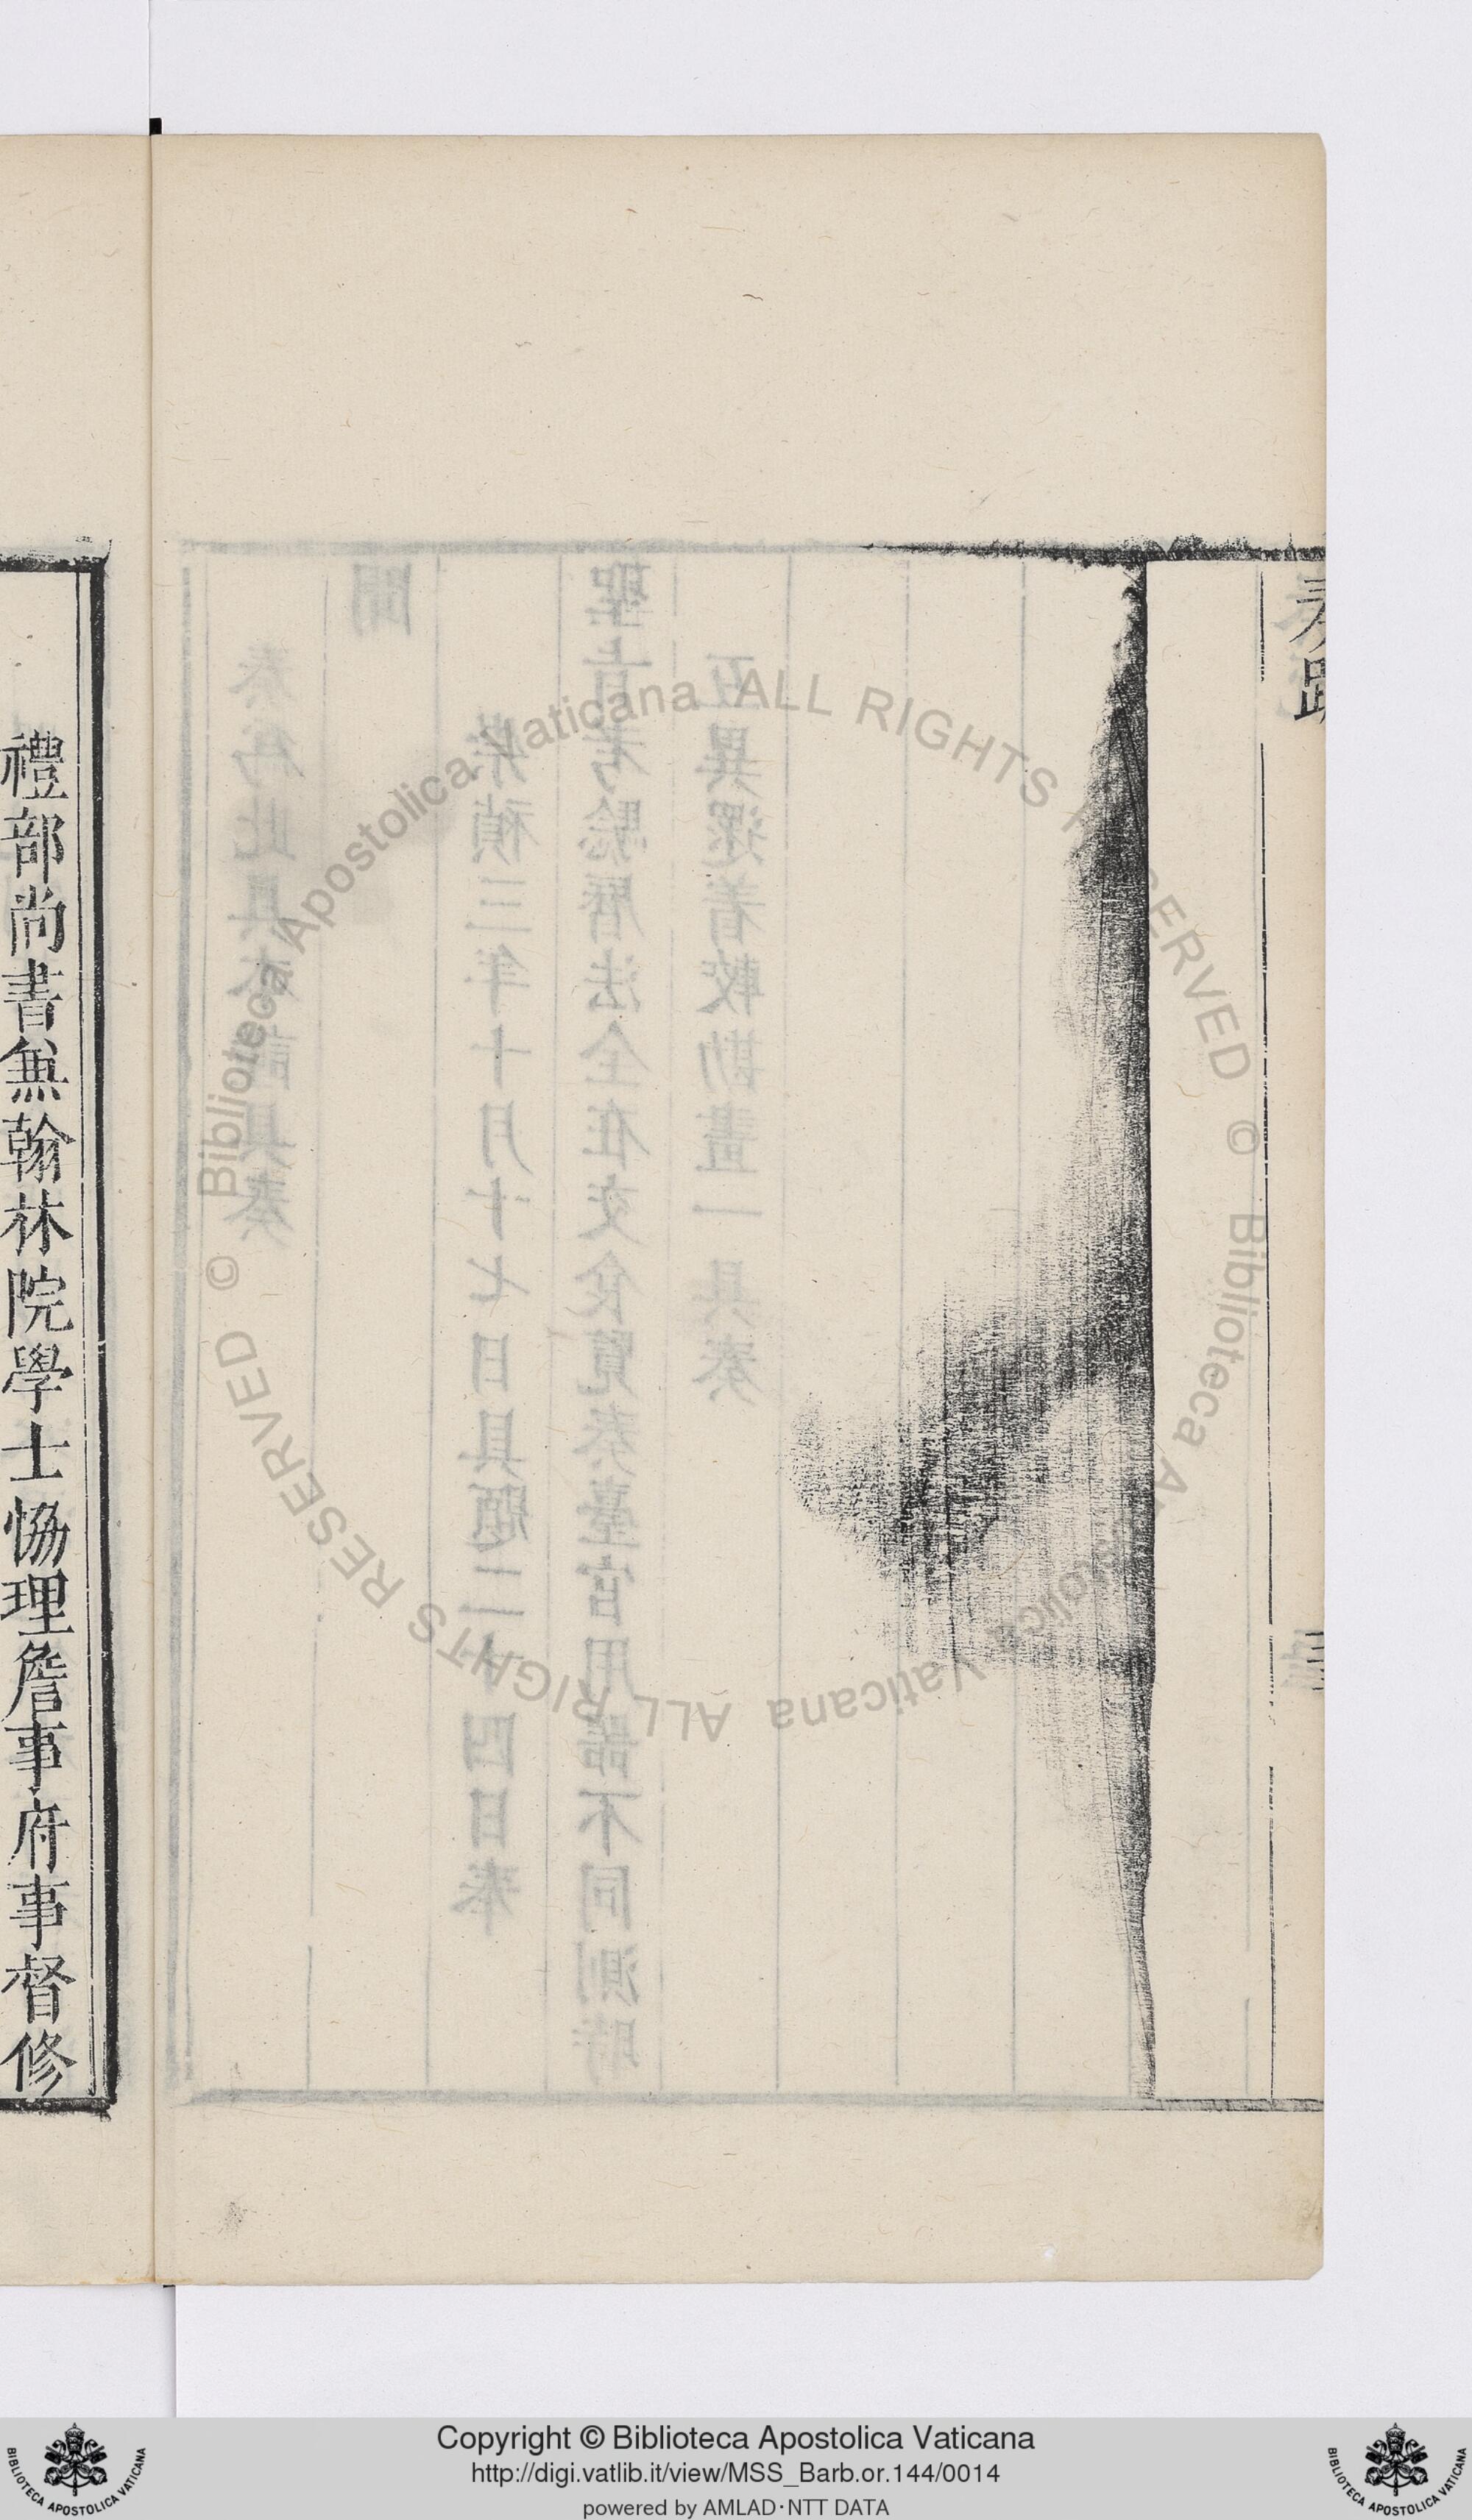 奏疏
奏為此具本謹具奏
聞
崇禎三年十月十七日具題二十四日奉
聖旨考驗曆法全在交食覽奏臺官用器不同測時
互異還着較勘畫一具奏
禮部尚書兼翰林院學士恊理詹事府事督修
© Biblioteca Apostolica Vaticana ALL RIGHTS RESERVED
© Biblioteca Apostolica Vaticana ALL RIGHTS RESERVED
Copyright © Biblioteca Apostolica Vaticana
http://digi.vatlib.it/view/MSS_Barb.or.144/0014
powered by AMLAD·NTT DATA
BIBLIOTECA APOSTOLICA VATICANA
BIBLIOTECA APOSTOLICA VATICANA